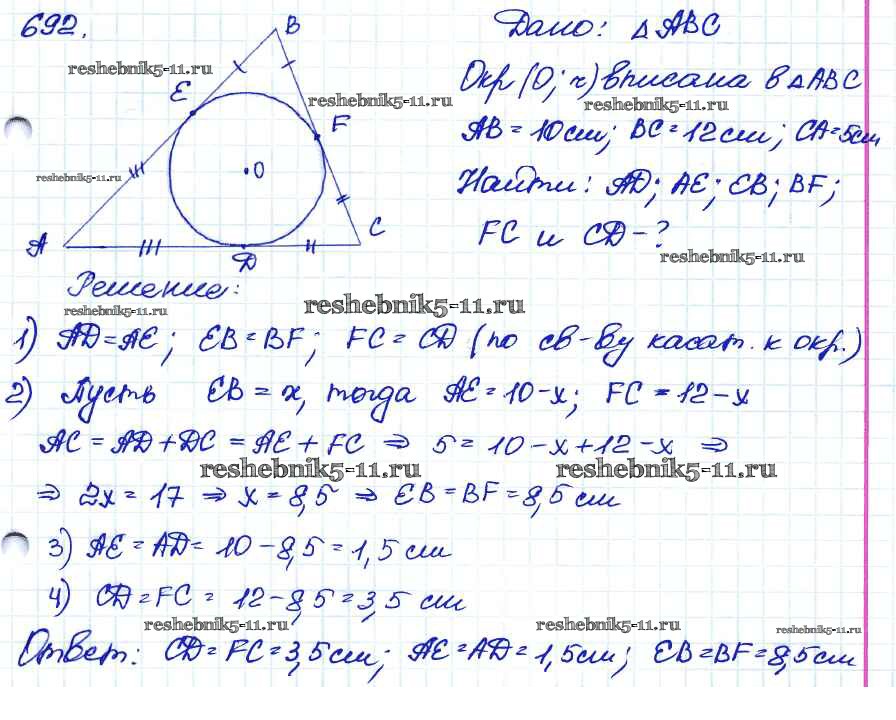 692.
Дано: △ABC
B
reshebnik5-11.ru
E
reshebnik5-11.ru
Окр(O; r) вписана в △ABC
reshebnik5-11.ru
F
AB = 10 см; BC = 12 см; CA = 5 см
O
reshebnik5-11.ru
Найти: AD; AE; EB; BF;
A
C
D
FC и CD – ?
reshebnik5-11.ru
Решение:
reshebnik5-11.ru
reshebnik5-11.ru
1) AD = AE; EB = BF; FC = CD (по св-ву касат. к окр.)
2) Пусть EB = x, тогда AE = 10 – x; FC = 12 – x
AC = AD + DC = AE + FC ⇒ 5 = 10 – x + 12 – x ⇒
reshebnik5-11.ru
reshebnik5-11.ru
⇒ 2x = 17 ⇒ x = 8,5 ⇒ EB = BF = 8,5 см
3) AE = AD = 10 – 8,5 = 1,5 см
4) CD = FC = 12 – 8,5 = 3,5 см
reshebnik5-11.ru
reshebnik5-11.ru
reshebnik5-11.ru
Ответ: CD = FC = 3,5 см; AE = AD = 1,5 см; EB = BF = 8,5 см